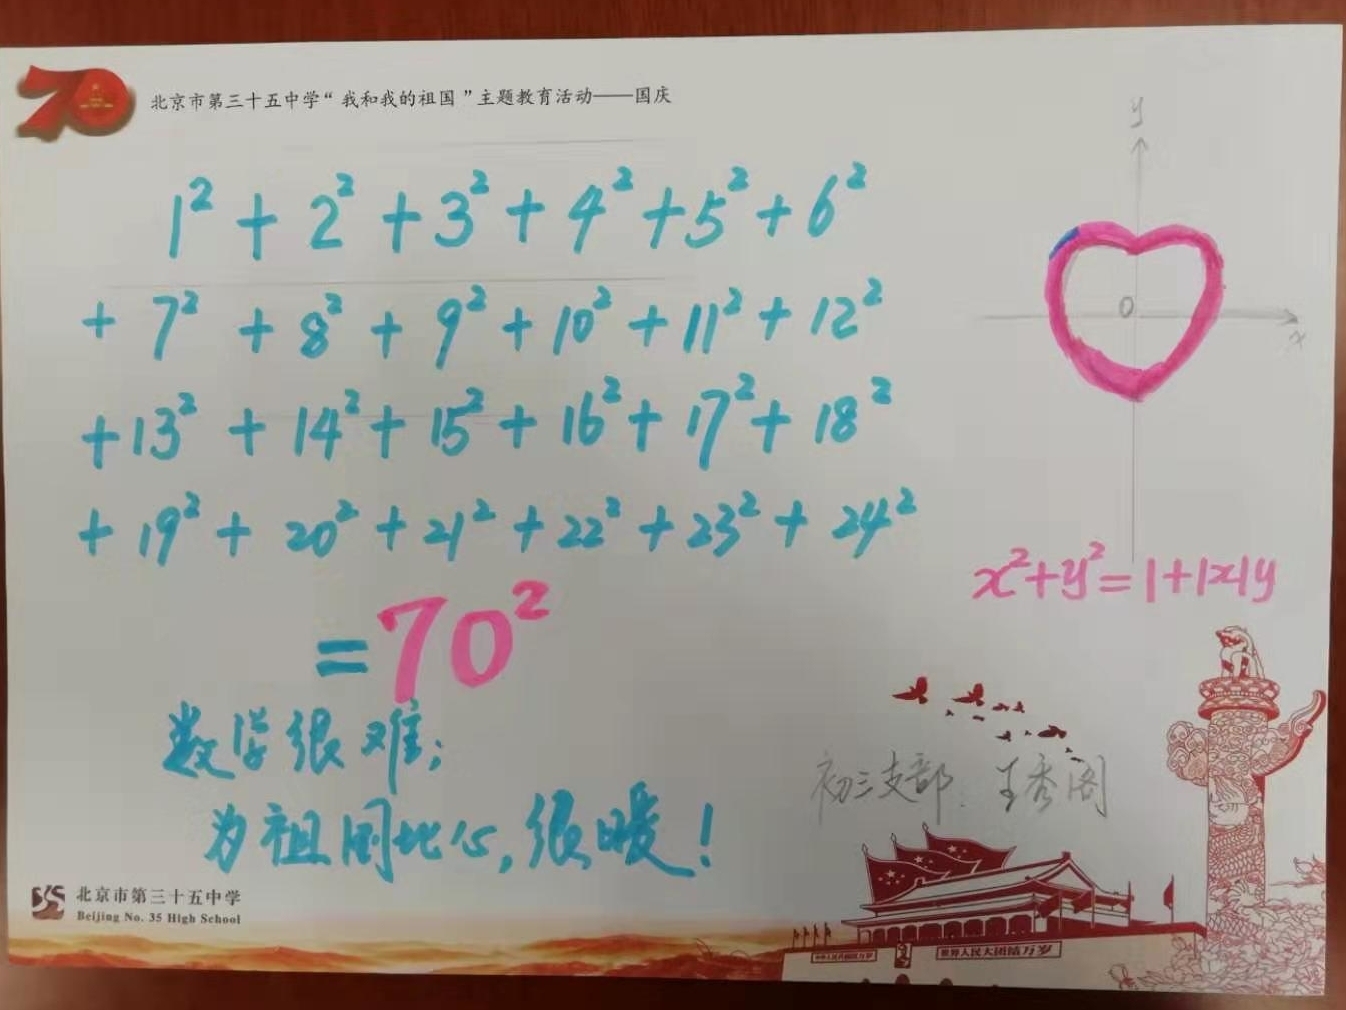 70
北京市第三十五中学“我和我的祖国”主题教育活动——国庆
y
1² + 2² + 3² + 4² + 5² + 6²
+ 7² + 8² + 9² + 10² + 11² + 12²
O
x
+ 13² + 14² + 15² + 16² + 17² + 18²
+ 19² + 20² + 21² + 22² + 23² + 24²
x²+y²=1+|x|y
=70²
数学很难;
为祖国比心,很暖!
初三支部 王秀阁
北京市第三十五中学
Beijing No. 35 High School
中华人民共和国万岁
世界人民大团结万岁